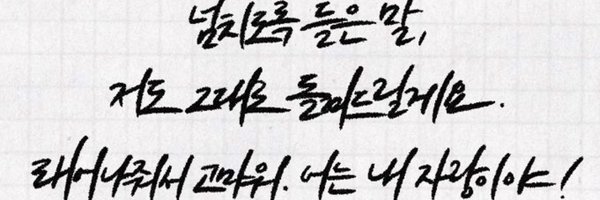 넘치도록 들은 말,
저도 그대로 돌려드릴게요.
태어나줘서 고마워. 너는 내 자랑이야!